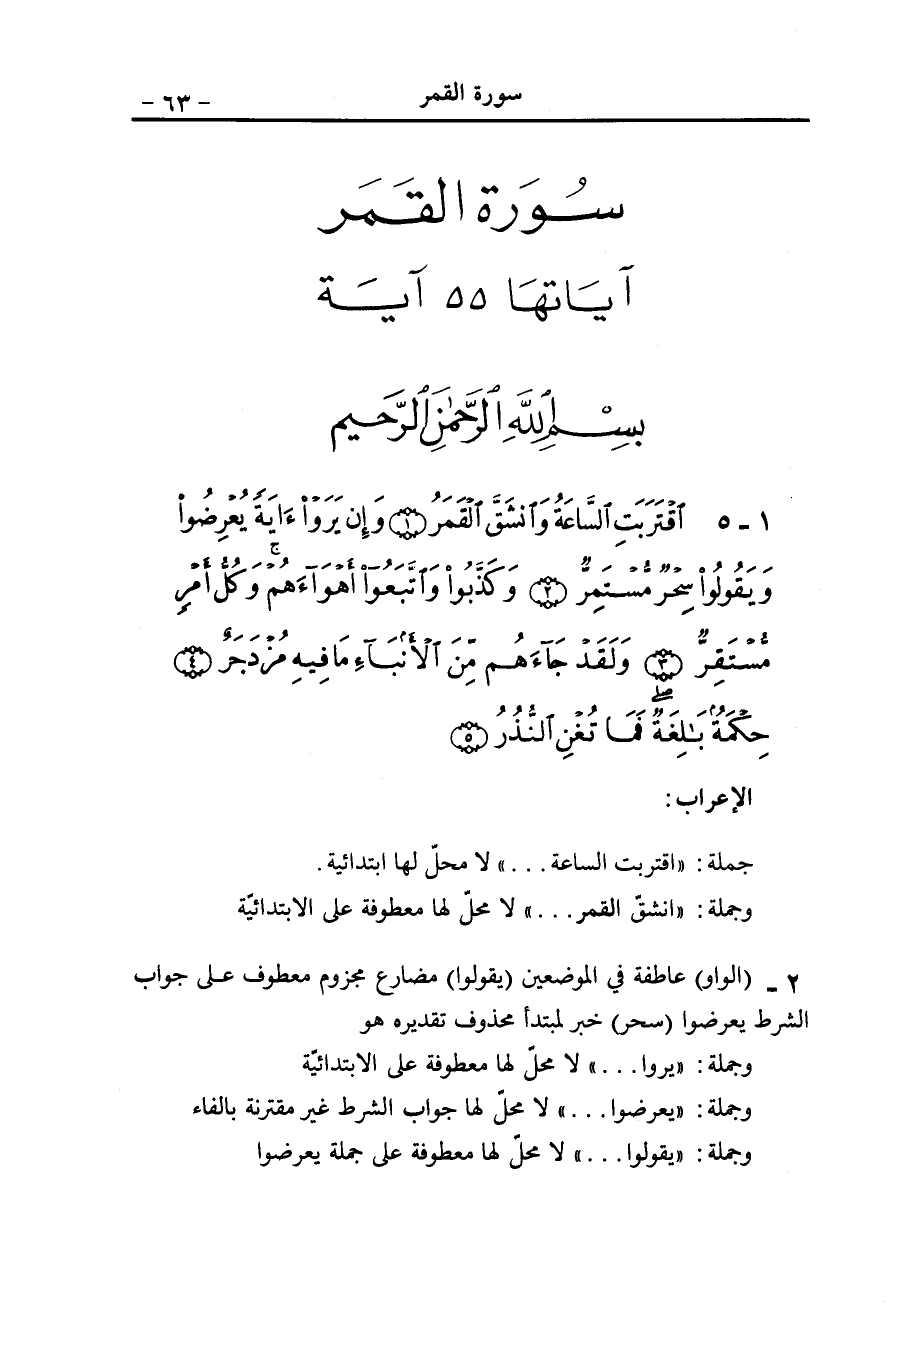 سورة القمر
- ٦٣ -
سُورَة القَمَر
آيَاتهَا ٥٥ آيَة
بِسْمِ ٱللَّهِ ٱلرَّحْمَٰنِ ٱلرَّحِيمِ
١ - ٥ ٱقْتَرَبَتِ ٱلسَّاعَةُ وَٱنشَقَّ ٱلْقَمَرُ (١) وَإِن يَرَوْا۟ ءَايَةً يُعْرِضُوا۟
وَيَقُولُوا۟ سِحْرٌ مُّسْتَمِرٌّ (٢) وَكَذَّبُوا۟ وَٱتَّبَعُوٓا۟ أَهْوَآءَهُمْ ۚ وَكُلُّ أَمْرٍ
مُّسْتَقِرٌّ (٣) وَلَقَدْ جَآءَهُم مِّنَ ٱلْأَنۢبَآءِ مَا فِيهِ مُزْدَجَرٌ (٤)
حِكْمَةٌۢ بَٰلِغَةٌ ۖ فَمَا تُغْنِ ٱلنُّذُرُ (٥)
الإعراب:
جملة: «اقتربت الساعة...» لا محلّ لها ابتدائية.
وجملة: «انشقّ القمر...» لا محلّ لها معطوفة على الابتدائيّة
٢ - (الواو) عاطفة في الموضعين (يقولوا) مضارع مجزوم معطوف على جواب
الشرط يعرضوا (سحر) خبر لمبتدأ محذوف تقديره هو
وجملة: «يروا...» لا محلّ لها معطوفة على الابتدائيّة
وجملة: «يعرضوا...» لا محلّ لها جواب الشرط غير مقترنة بالفاء
وجملة: «يقولوا...» لا محلّ لها معطوفة على جملة يعرضوا